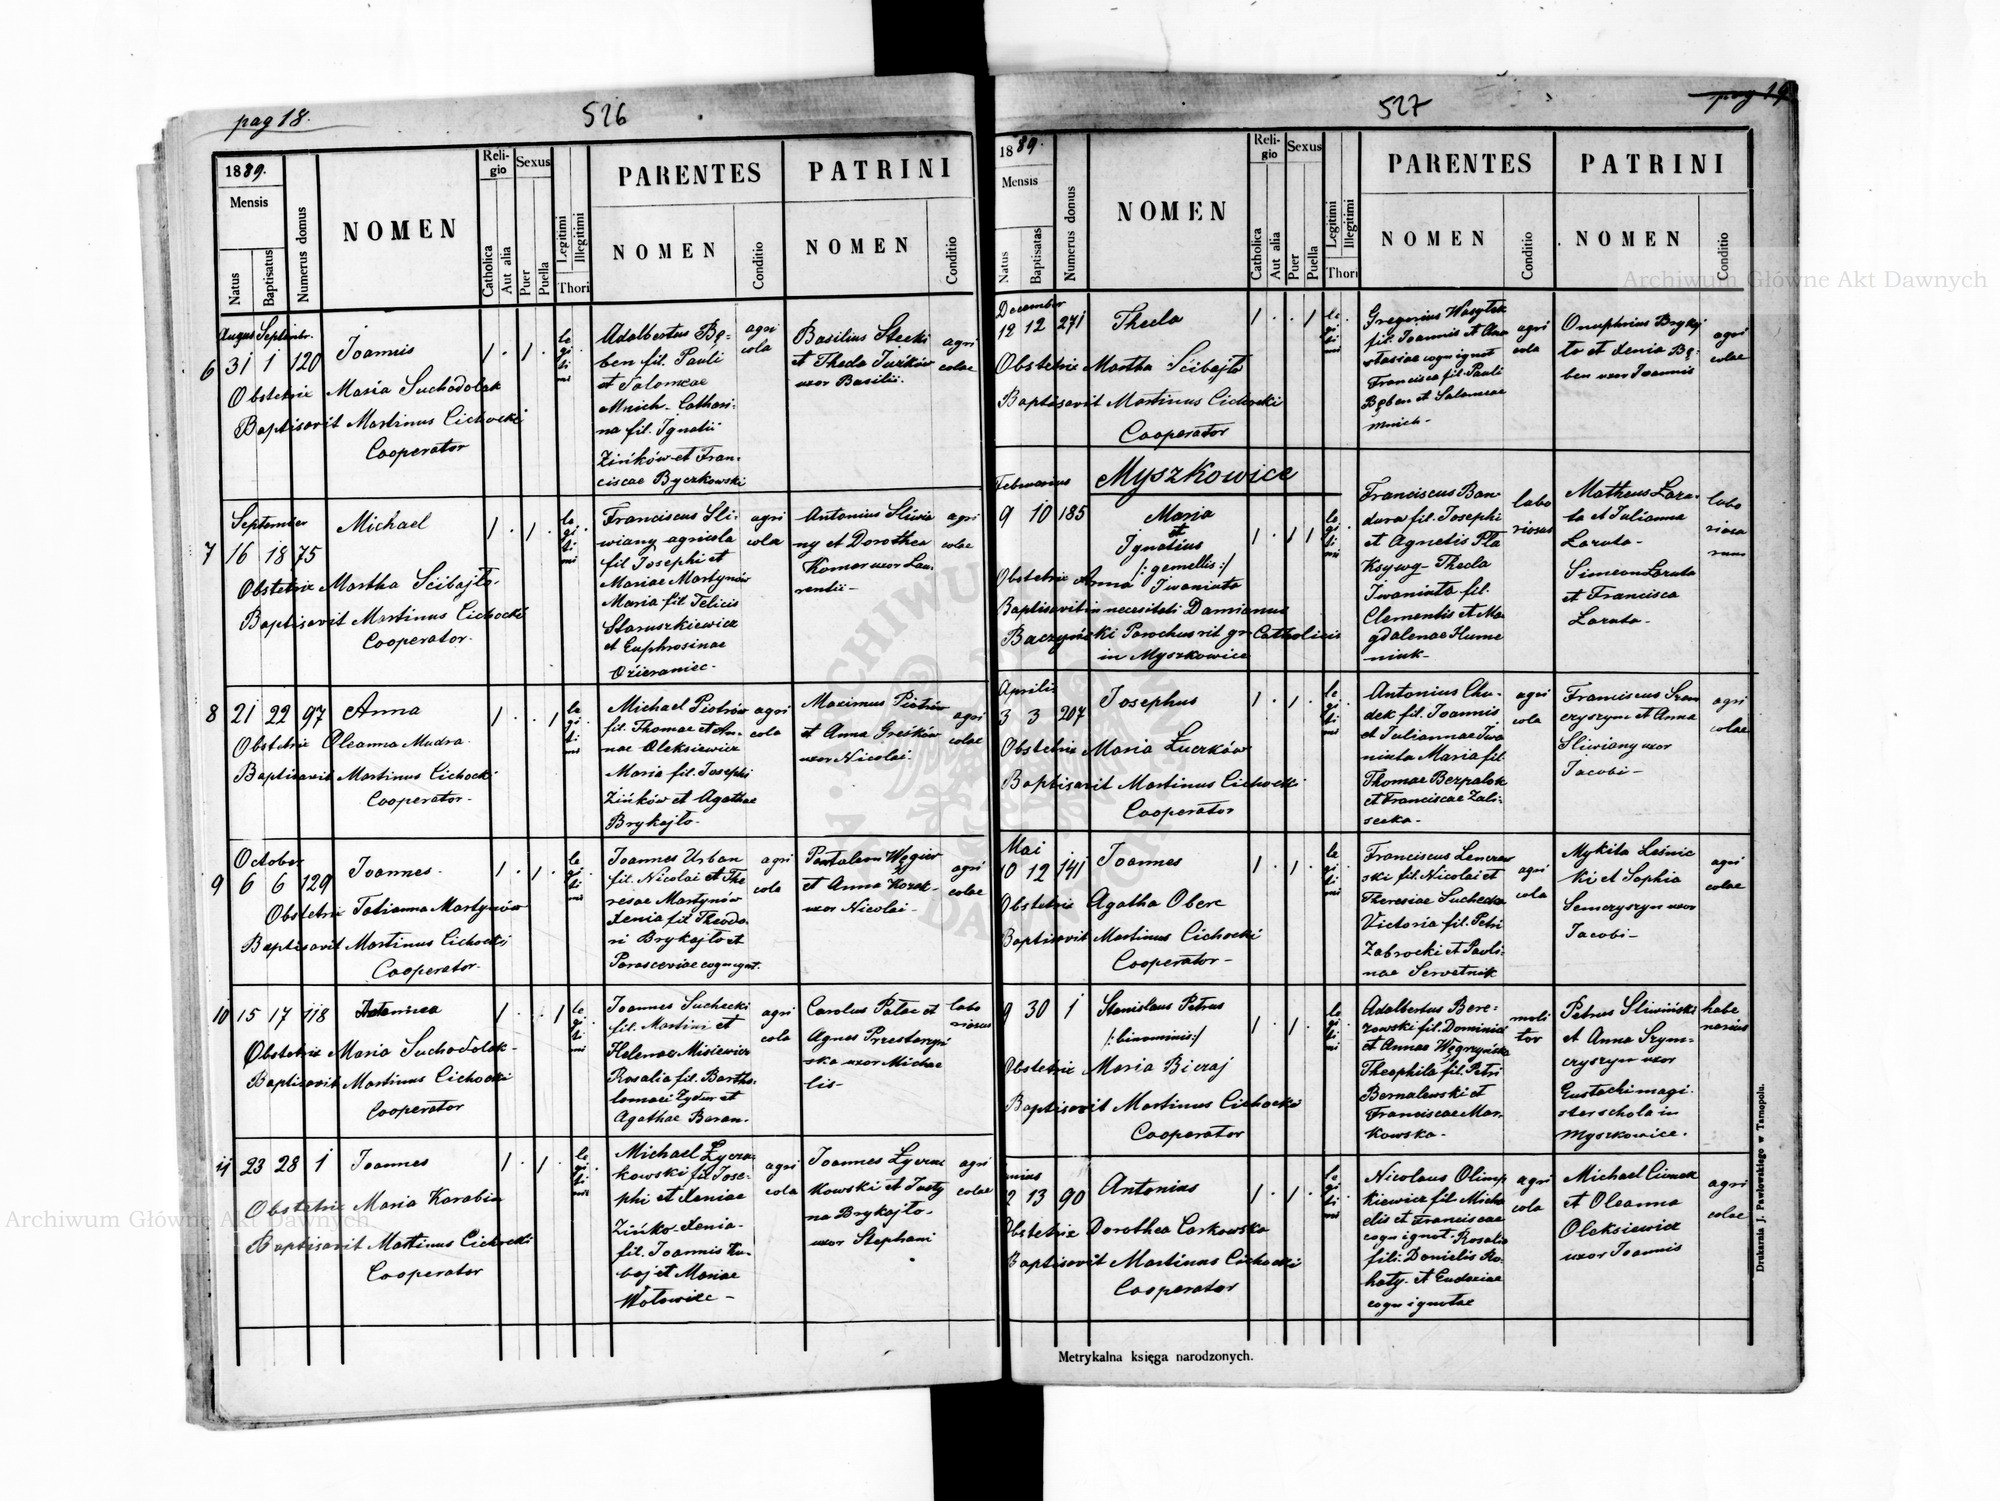 pag 18.
526
1889.
Mensis
Natus
Baptisatus
Numerus domus
NOMEN
Reli-
gio
Catholica
Aut alia
Sexus
Puer
Puella
Legitimi
Illegitimi
Thori
PARENTES
NOMEN
Conditio
PATRINI
NOMEN
Conditio
6 31 1 120 Joannis
Obstetrix Maria Suchodolak
Baptisavit Martinus Cichocki
Cooperator
le
gi
ti
mi
Adalbertus Bę-
ben fil. Pauli
et Salomeae
Mnich- Cathari-
na fil. Ignatii
Zińków et Fran-
ciscae Byczkowski
agri
cola
Basilius Stecki
et Theda Juzków
uxor Basilii.
agri
colae
September
7 16 18 75 Michael
Obstetrix Martha Scibajło-
Baptisavit Martinus Cichocki
Cooperator.
le
gi
ti
mi
Franciscus Sli-
wiany agricola
fil Josephi et
Mariae Martynów
Maria fil Felicis
Staruszkiewicz
et Euphrosinae
Ozieraniec-
agri
cola
Antonius Sliwia
ny et Dorothea
Komar uxor Lau-
rentii-
agri
colae
8 21 22 97 Anna
Obstetrix Oleanna Mudra
Baptisavit Martinus Cichocki
Cooperator-
le
gi
ti
mi
Michael Piotrów
fil. Thomae et An-
nae Oleksiewicz
Maria fil. Josephi
Zińków et Agathae
Brykajło-
agri
cola
Maximus Piotrów
et Anna Greśków
uxor Nicolai.
agri
colae
October
9 6 6 129 Joannes-
Obstetrix Tatianna Martynów
Baptisavit Martinus Cichocki
Cooperator-
le
gi
ti
mi
Joannes Urban
fil. Nicolai et The
resae Martynów
Xenia fil Theodo-
ri Brykajło et
Parasceviae cogn ignt.
agri
cola
Pantaleon Węgier
et Anna Kozak-
uxor Nicolai-
agri
colae
10 15 17 118
Obstetrix Maria Suchodolak-
Baptisavit Martinus Cichocki
Cooperator
le
gi
ti
mi
Joannes Suchecki
fil. Martini et
Helenae Misiewicz
Rosalia fil. Bartho-
lomaei Zydur et
Agathae Baran-
agri
cola
Carolus Palac et
Agnes Przestarzyń
ska uxor Michae
lis-
labo
riosus
11 23 28 1 Joannes
Obstetrix Maria Karabin
Baptisavit Martinus Cichocki
Cooperator
le
gi
ti
mi
Michael Łycza-
kowski fil Jose-
phi et Xeniae
Zińko- Xenia-
fil. Joannis Ku-
baj et Mariae
Wołowiec-
agri
cola
Joannes Łyczak
kowski et Justy
na Brykajło-
uxor Stephani
agri
colae
527
pag 19
1889.
Mensis
Natus
Baptisatus
Numerus domus
NOMEN
Reli-
gio
Catholica
Aut alia
Sexus
Puer
Puella
Legitimi
Illegitimi
Thori
PARENTES
NOMEN
Conditio
PATRINI
NOMEN
Conditio
December
12 12 271 Theda
Obstetrix Martha Scibajło
Baptisavit Martinus Cichocki
Cooperator
le
gi
ti
mi
Gregorius Wasylek
fil. Joannis et Ana
stasiae cogn ignot
Francisca fil. Pauli
Bęben et Salomeae
Mnich-
agri
cola
Onuphrius Brykaj
ło et Xenia Bę-
ben uxor Joannis
agri
colae
Myszkowice
Februarius
9 10 185 Maria
et
Ignatius
/:gemellis:/
Obstetrix Anna Iwaniuta
Baptisavit in necesitati Damianus
Baczyński Parochus rit gr. Catholicis
in Myszkowice
le
gi
ti
mi
Franciscus Ban
dura fil. Josephi
et Agnetis Pla
Ksywy- Thecla
Iwaniuta fil.
Clementis et Ma-
gdalenae Hume
niuk-
labo
riosus
Matheus Lazu-
ta et Julianna
Lazuta-
Simeon Lazuta
et Francisca
Lazuta-
labo
rioso
rum
Aprilis
3 3 207 Josephus
Obstetrix Maria Łuczków
Baptisavit Martinus Cichocki
Cooperator
le
gi
ti
mi
Antonius Chu-
dek fil. Joannis
et Juliannae Iwa
niuta Maria fil
Thomae Bezpalok
et Franciscae Zali-
secka-
agri
cola
Franciscus Szem
czyszyn et Anna
Sliwiany uxor
Jacobi-
agri
colae
Mai
10 12 141 Joannes
Obstetrix Agatha Oberc
Baptisavit Martinus Cichocki
Cooperator-
le
gi
ti
mi
Franciscus Lenczew
ski fil. Nicolai et
Theresiae Suchecka
Victoria fil. Petri
Zabrocki et Pauli-
nae Serwetnik
agri
cola
Mykita Leśnic
ki et Sophia
Semczyszyn uxor
Jacobi-
agri
colae
9 30 1 Stanislaus Petrus
/:binominis:/
Obstetrix Maria Biczaj
Baptisavit Martinus Cichocki
Cooperator
le
gi
ti
mi
Adalbertus Bere-
zowski fil. Dominici
et Annae Węgrzyńska
Theophila fil. Petri
Bernalewski et
Franciscae Mar-
kowska-
moli
tor
Petrus Sliwiński
et Anna Szym-
czyszyn uxor
Eustachi magi
ster schola in
Myszkowice.
2 13 90 Antonius
Obstetrix Dorothea Carkowska
Baptisavit Martinus Cichocki
Cooperator
le
gi
ti
mi
Nicolaus Olimp
kiewicz fil. Micha
elis et Franciscae
cogn ignot- Rosalia
fili. Danielis Ro-
haty- et Eudoxiae
cogn ignotae
agri
cola
Michael Ciumak
et Oleanna
Oleksiewicz
uxor Joannis
agri
colae
Metrykalna księga narodzonych.
Drukarnia J. Pawłowskiego w Tarnopolu.
Archiwum Główne Akt Dawnych
Archiwum Główne Akt Dawnych